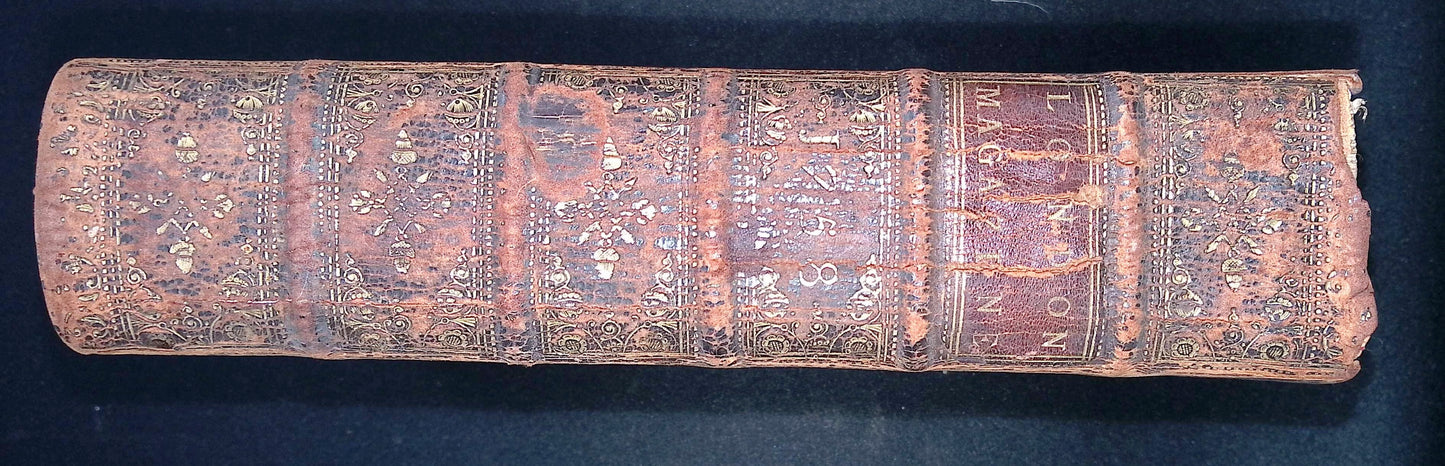 LONDON
MAGAZINE
1758